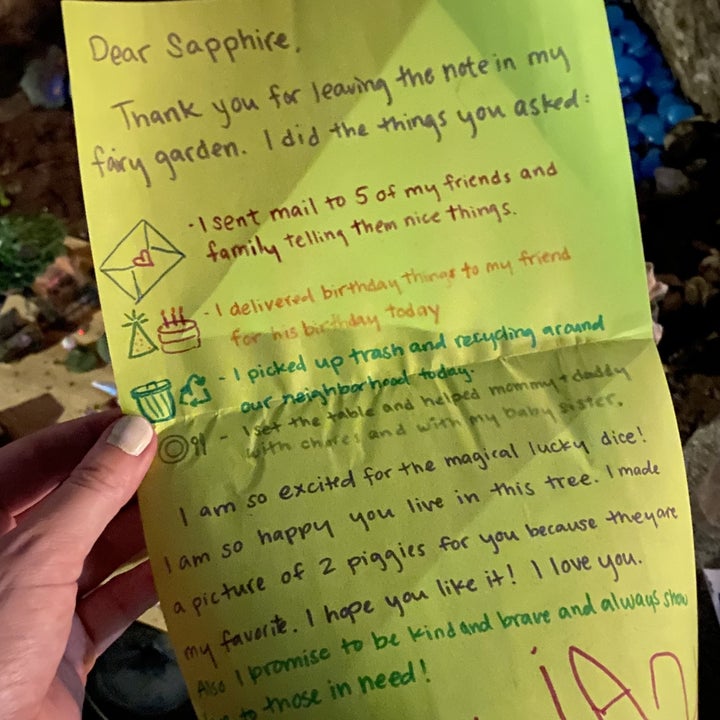 Dear Sapphire,
Thank you for leaving the note in my
fairy garden. I did the things you asked:
- I sent mail to 5 of my friends and
family telling them nice things.
- I delivered birthday things to my friend
for his birthday today
- I picked up trash and recycling around
our neighborhood today.
- I set the table and helped mommy + daddy
with chores and with my baby sister.
I am so excited for the magical lucky dice!
I am so happy you live in this tree. I made
a picture of 2 piggies for you because they are
my favorite. I hope you like it! I love you.
Also I promise to be kind and brave and always show
to those in need!